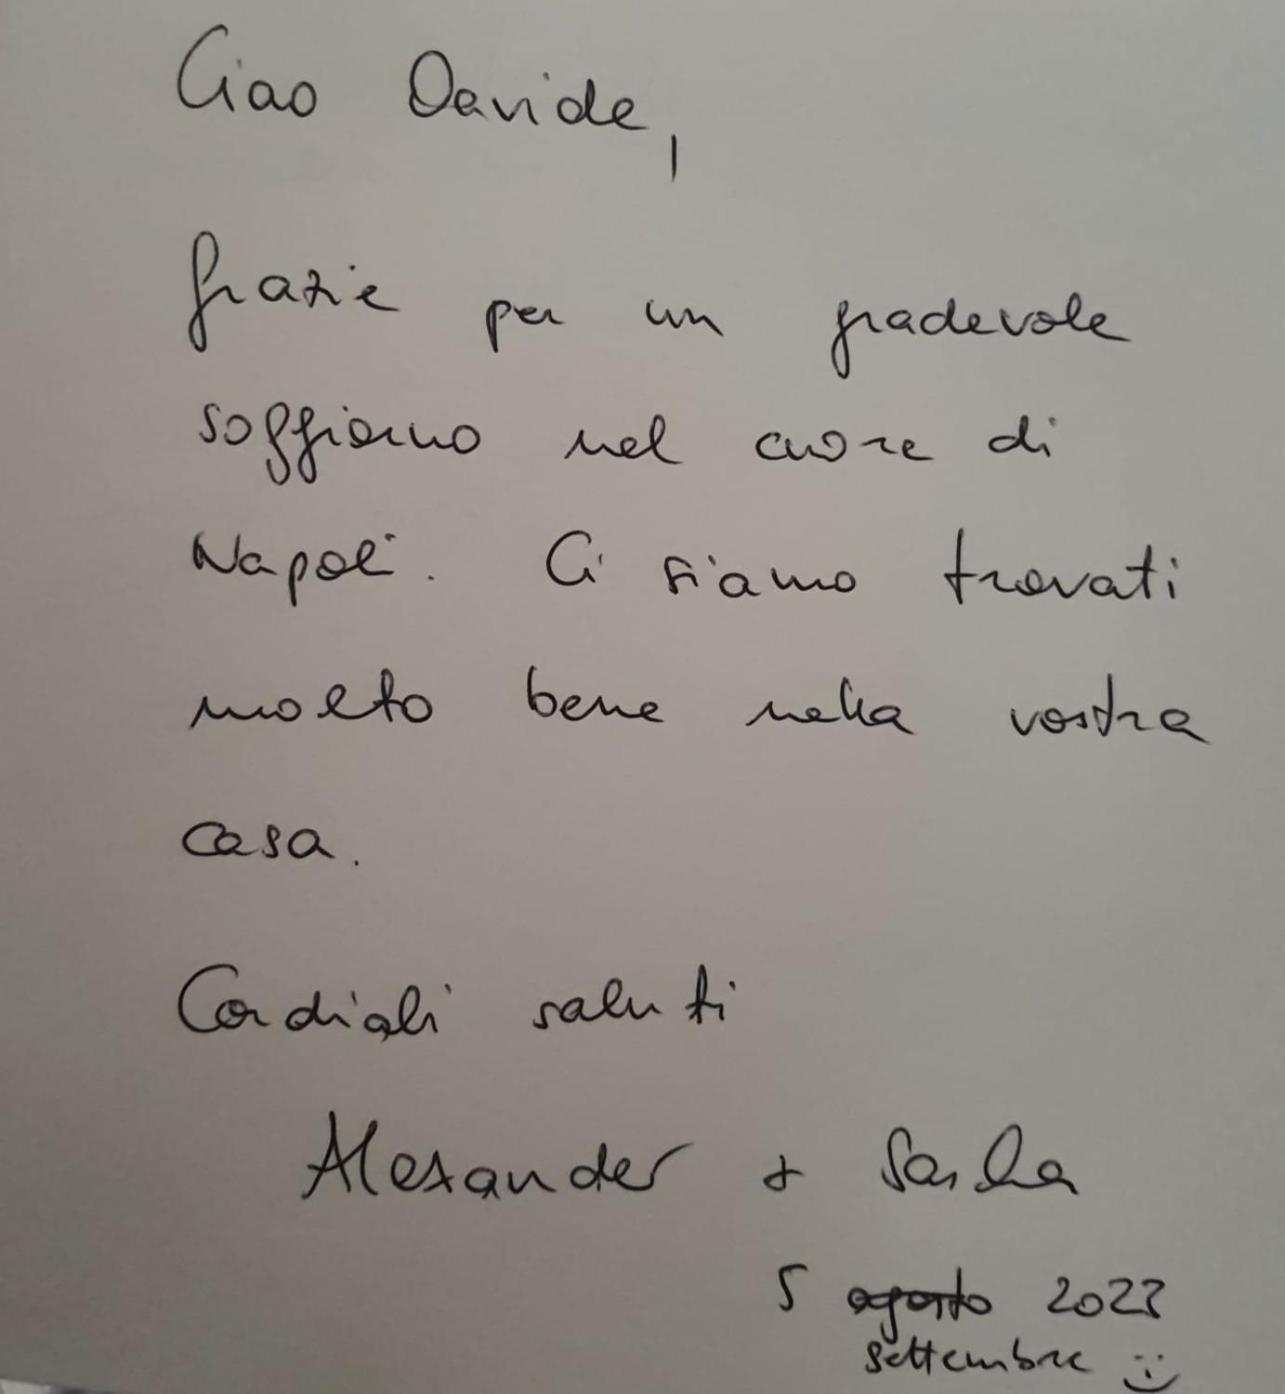 Ciao Davide,
grazie per un gradevole
soggiorno nel cuore di
Napoli. Ci siamo trovati
molto bene nella vostra
casa.
Cordiali saluti
Alexander +
5 agosto 2023
settembre :)